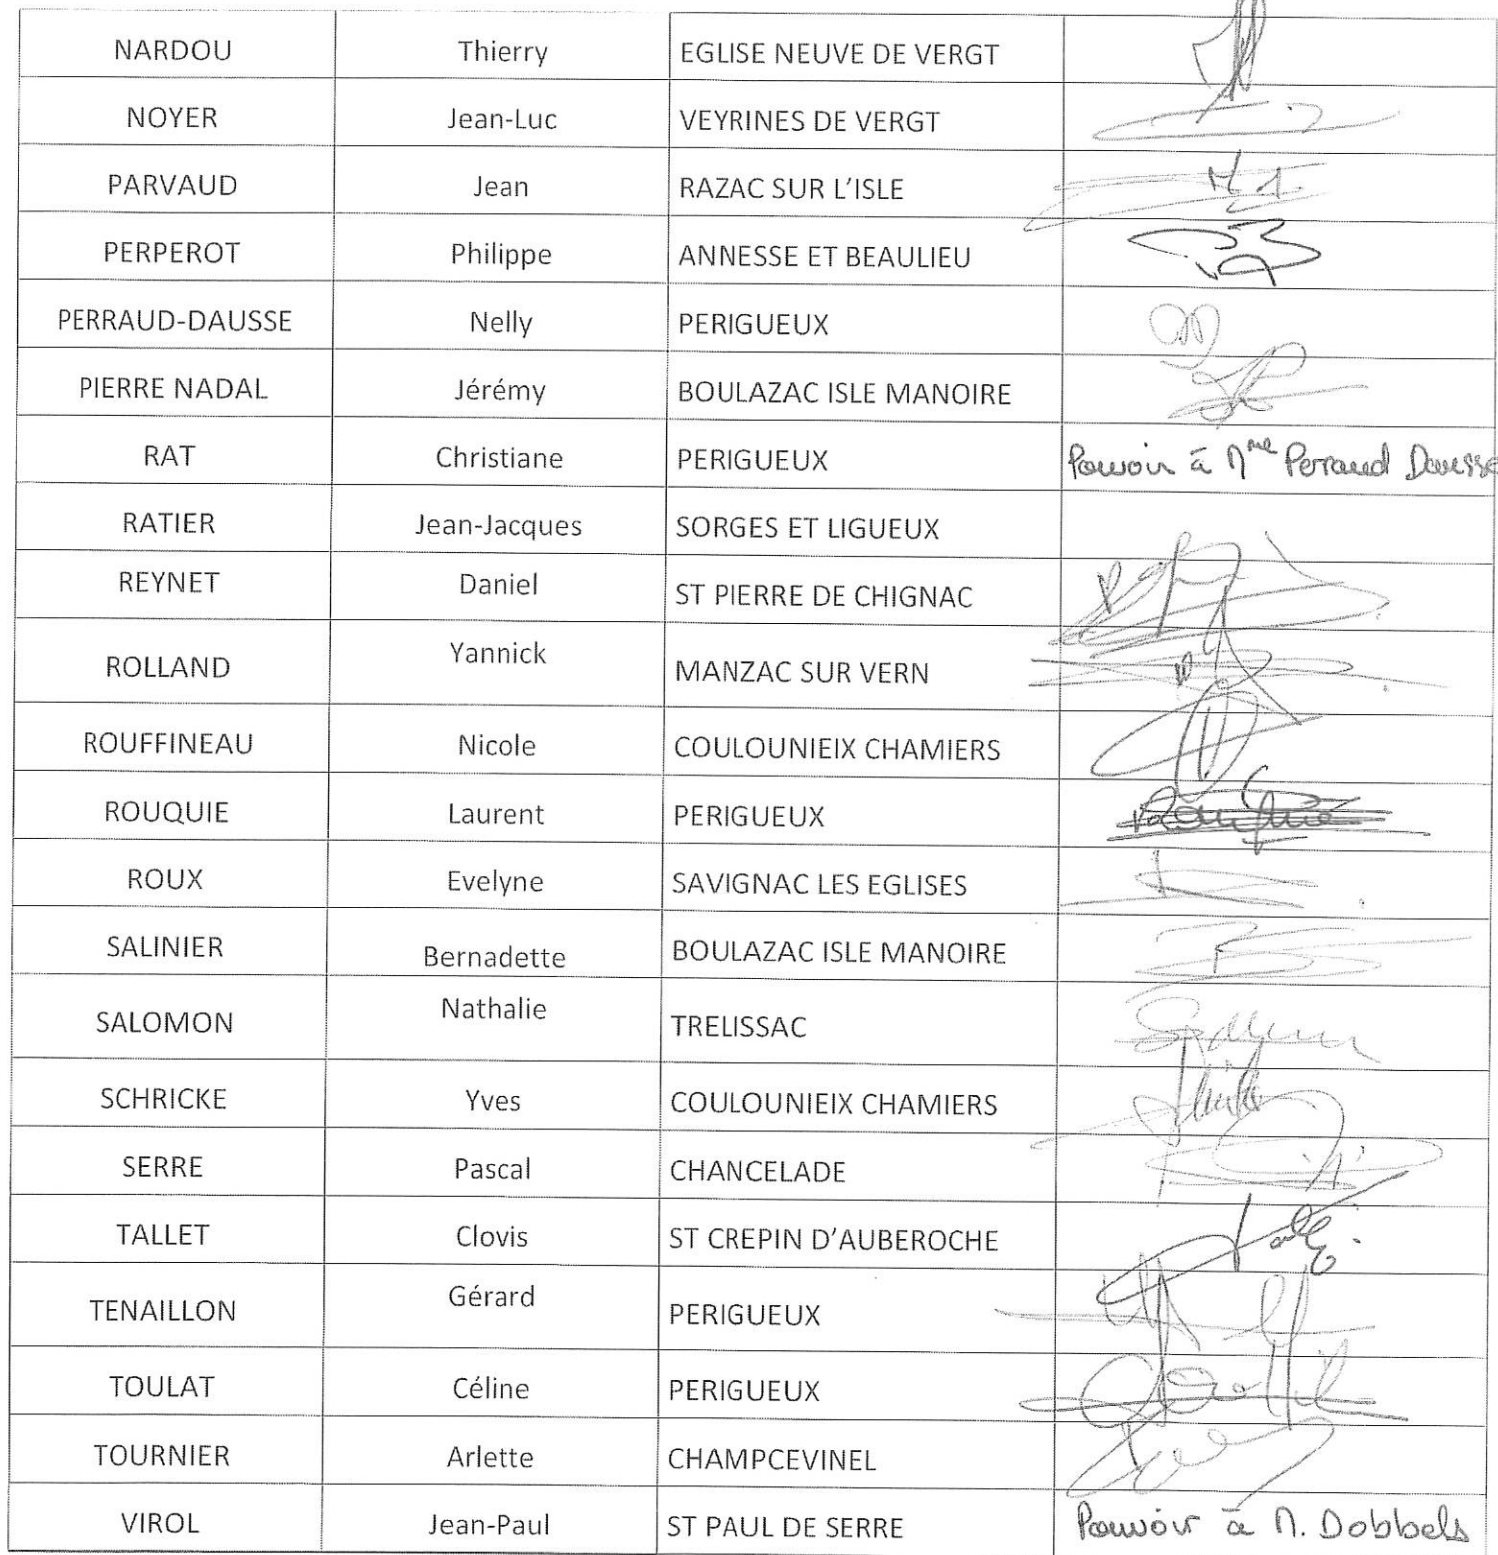 NARDOU Thierry EGLISE NEUVE DE VERGT
NOYER Jean-Luc VEYRINES DE VERGT
PARVAUD Jean RAZAC SUR L'ISLE
PERPEROT Philippe ANNESSE ET BEAULIEU
PERRAUD-DAUSSE Nelly PERIGUEUX
PIERRE NADAL Jérémy BOULAZAC ISLE MANOIRE
RAT Christiane PERIGUEUX Pouvoir à Mme Perraud Dausse
RATIER Jean-Jacques SORGES ET LIGUEUX
REYNET Daniel ST PIERRE DE CHIGNAC
ROLLAND Yannick MANZAC SUR VERN
ROUFFINEAU Nicole COULOUNIEIX CHAMIERS
ROUQUIE Laurent PERIGUEUX
ROUX Evelyne SAVIGNAC LES EGLISES
SALINIER Bernadette BOULAZAC ISLE MANOIRE
SALOMON Nathalie TRELISSAC
SCHRICKE Yves COULOUNIEIX CHAMIERS
SERRE Pascal CHANCELADE
TALLET Clovis ST CREPIN D'AUBEROCHE
TENAILLON Gérard PERIGUEUX
TOULAT Céline PERIGUEUX
TOURNIER Arlette CHAMPCEVINEL
VIROL Jean-Paul ST PAUL DE SERRE Pouvoir à M. Dobbels